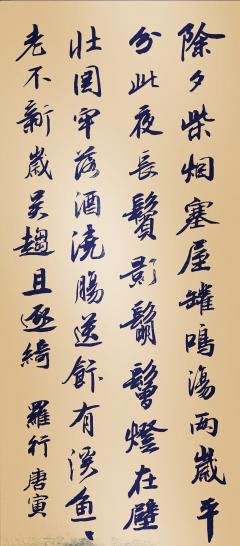 除夕柴烟塞屋罐鳴湯两歲平
分此夜長鬢影鬅鬙燈在壁
壯圖牢落酒澆腸送有淡魚
老不新歲吴趨且逐綺羅行唐寅